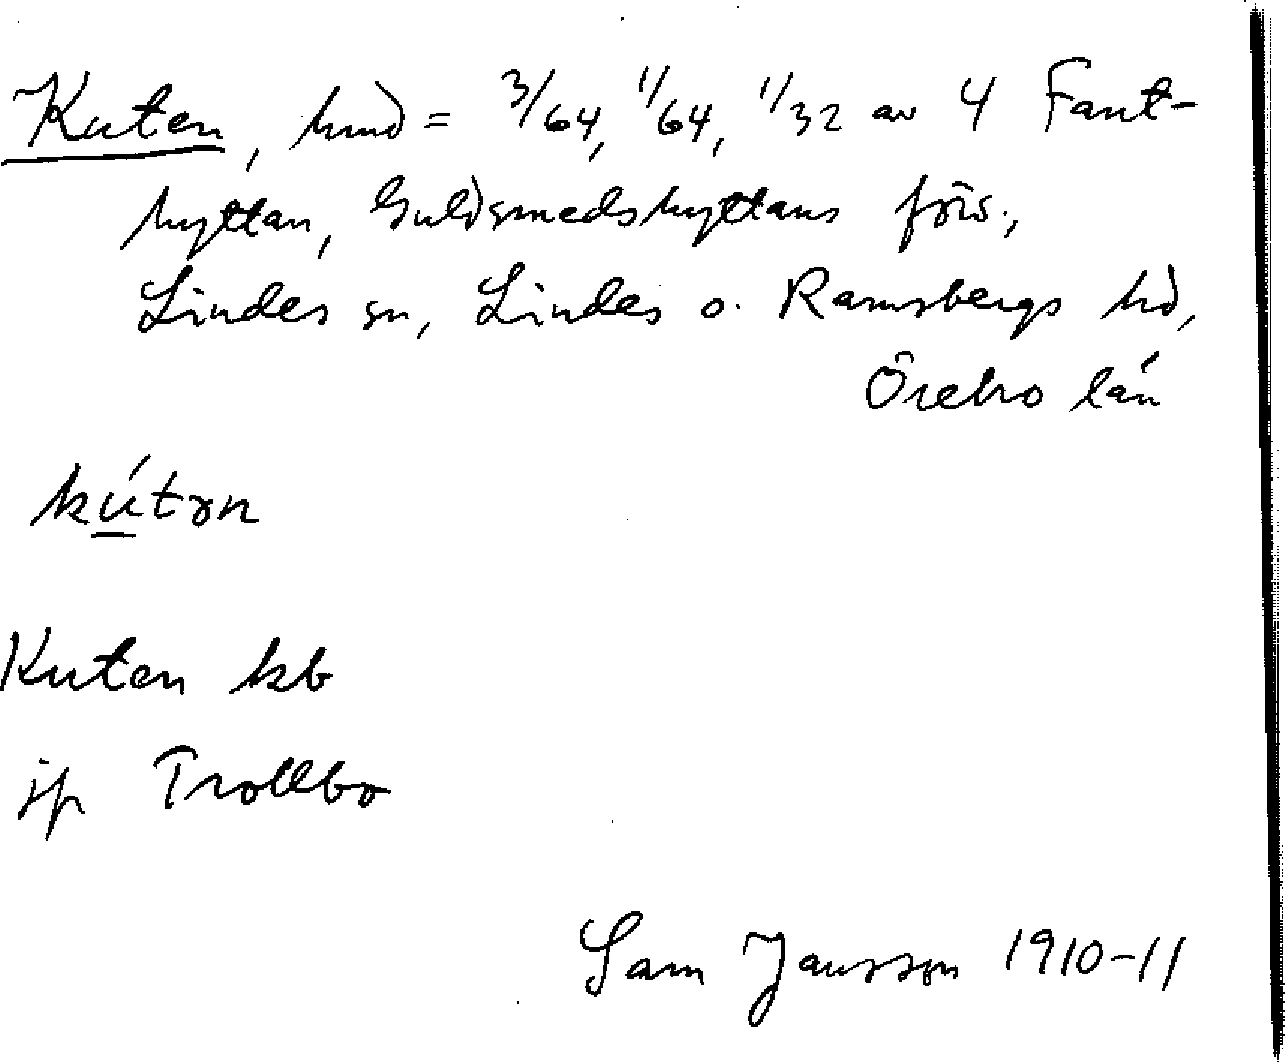 Kuten, hmd = 3/64, 1/64, 1/32 av 4 Fant-
hyttan, Guldsmedshyttans förs.,
Lindes sn, Lindes o. Ramsbergs hd,
Örebro län
kútən
Kuten kb
jfr Trollbo
Sam Jansson 1910-11